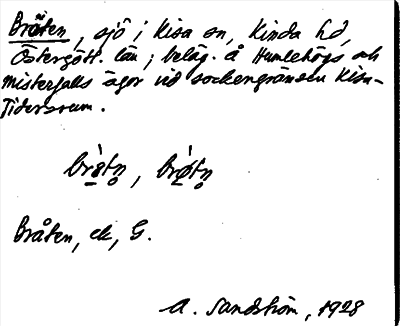 Bråten, sjö i Kisa sn, Kinda hd,
Östergötl. län; beläg. å Humlehögs och
Misterfalls ägor vid sockengränsen Kisa-
Tidersrum.
bròtn̥, brø̀tn̥
Bråten, ek, G.
A. Sandström, 1928